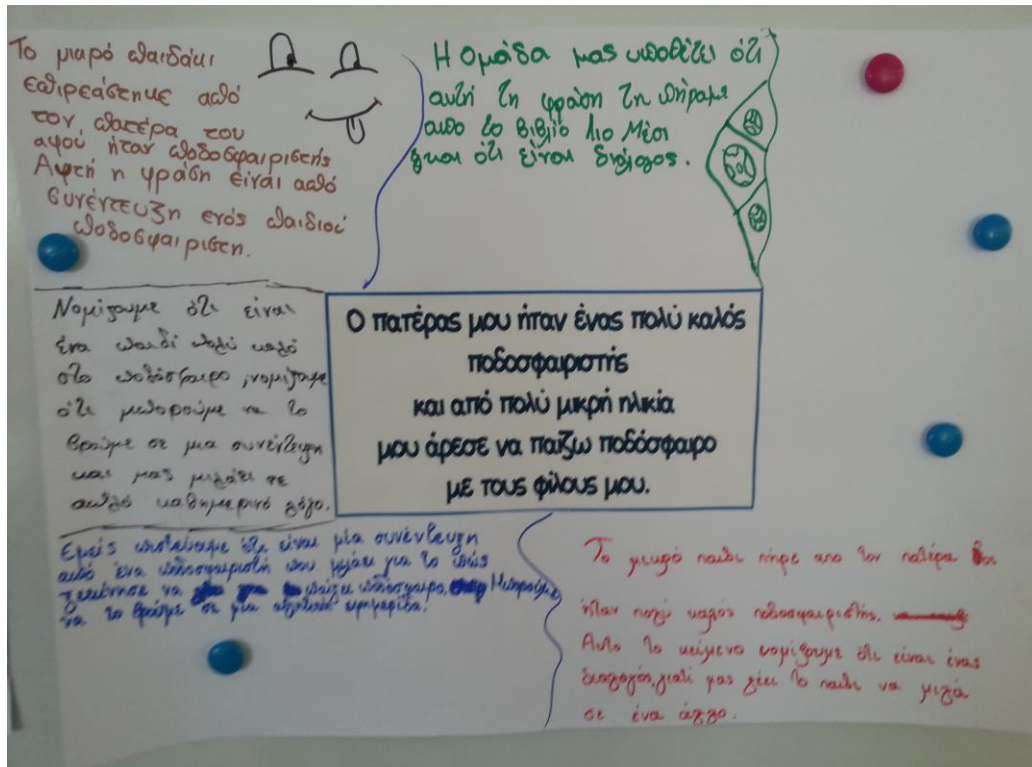 Το μικρό παιδάκι
επιρεάστηκε από
τον πατέρα του
αφού ήταν ποδοσφαιριστής
Αφτή η φράση είναι από
συνέντευξη ενός παιδιού
ποδοσφαιριστη.
Η Ομάδα μας υποθέτει ότι
αυτή τη φράση τη πήραμε
απο το βιβλίο Λιο Μέσι
και ότι είναι διάλογος.
Νομίζουμε ότι είναι
ένα παιδί πολύ καλό
στο ποδόσφαιρο, νομίζουμε
ότι μπορούμε να το
βρούμε σε μια συνέντευξη
και μας μιλάει σε
απλό καθημερινό λόγο.
Ο πατέρας μου ήταν ένας πολύ καλός
ποδοσφαιριστής
και από πολύ μικρή ηλικία
μου άρεσε να παίζω ποδόσφαιρο
με τους φίλους μου.
Εμείς πιστεύουμε ότι είναι μία συνέντευξη
από ένα ποδοσφαιριστή που μιλάει για το πώς
ξεκίνησε να παίζει ποδόσφαιρο. Μπορούμε
να το βρούμε σε μια αθλητική εφημερίδα.
Το μικρό παιδι πήρε απο τον πατέρα
ήταν πολύ καλός ποδοσφαιριστής.
Αυτο το κείμενο νομίζουμε ότι είναι ένας
διαλογός, γιατί μας λέει το παιδι να μιλά
σε ένα άλλο.